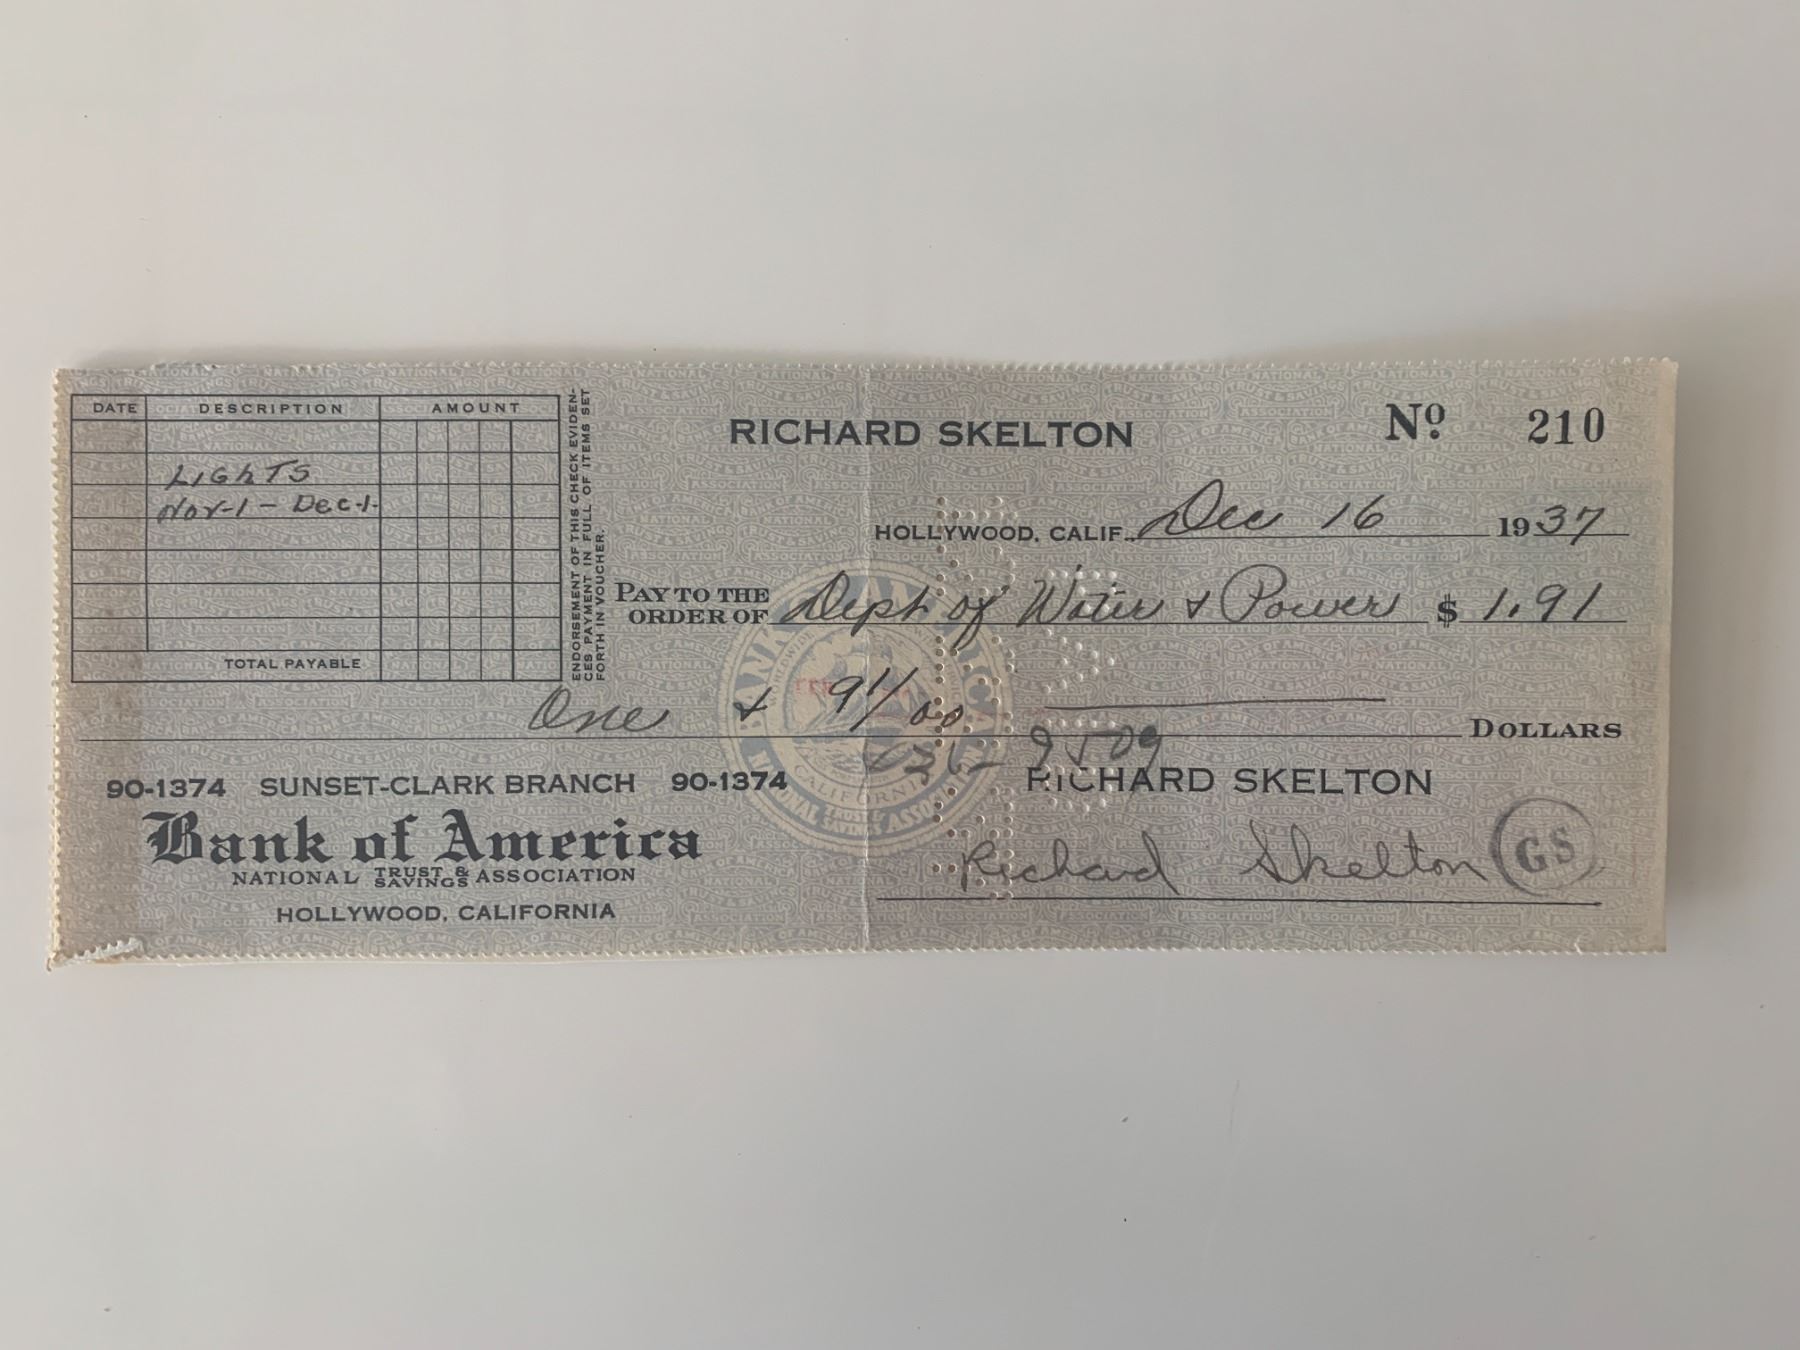 DATE DESCRIPTION AMOUNT
LIGhTS
Nov-1 - Dec-1-
TOTAL PAYABLE
ENDORSEMENT OF THIS CHECK EVIDEN-
CES PAYMENT IN FULL OF ITEMS SET
FORTH IN VOUCHER.
RICHARD SKELTON
Nº 210
HOLLYWOOD, CALIF., Dec 16 1937
PAY TO THE
ORDER OF Dept of Water & Power $ 1.91
One & 91/00 DOLLARS
9509
90-1374 SUNSET-CLARK BRANCH 90-1374
Bank of America
NATIONAL TRUST & SAVINGS ASSOCIATION
HOLLYWOOD, CALIFORNIA
RICHARD SKELTON
Richard Skelton
GS